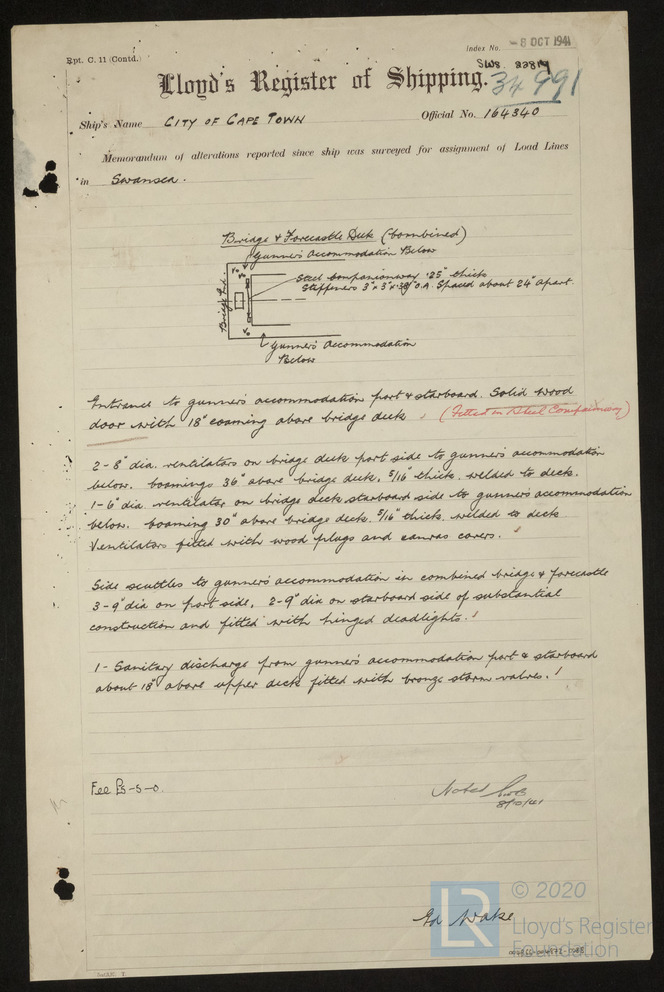 Rpt. C. 11 (Contd.)
Index No.
-8 OCT 1941
SWS. 22819
34991
Lloyd's Register of Shipping.
Ship's Name CITY OF CAPE TOWN Official No. 164340
Memorandum of alterations reported since ship was surveyed for assignment of Load Lines
in Swansea.
Bridge & Forecastle Deck (Combined)
Gunner's Accommodation Below
Steel Companionway .25" thick
Stiffeners 3" x 3" x O.A. Spaced about 24" apart.
Bridge
Gunner's Accommodation
Below
Entrance to gunner's accommodation port & starboard. Solid wood
door with 18" coaming above bridge deck. (Fitted in steel Companionway)
2-8" dia. ventilators on bridge deck port side to gunner's accommodation
below. Coamings 36" above bridge deck, 5/16" thick, welded to deck.
1-6" dia ventilator on bridge deck starboard side to gunner's accommodation
below. Coaming 30" above bridge deck. 5/16" thick, welded to deck
Ventilators fitted with wood plugs and canvas covers.
Side scuttles to gunner's accommodation in combined bridge & forecastle
3-9" dia on port side, 2-9" dia on starboard side of substantial
construction and fitted with hinged deadlights.
1- Sanitary discharge from gunner's accommodation port & starboard
about 18" above upper deck fitted with bronze storm valves.
Fee £5-5-0.
Noted
8/10/41
Ed Wake
LR
© 2020
Lloyd's Register
Foundation